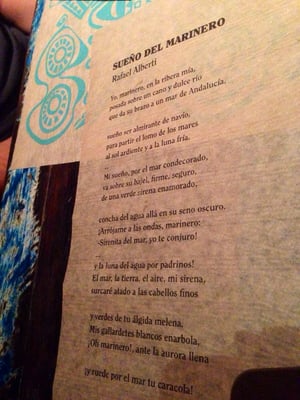 SUEÑO DEL MARINERO
Rafael Alberti
Yo, marinero, en la ribera mía,
posada sobre un cano y dulce río
que da su brazo a un mar de Andalucía,
sueño ser almirante de navío,
para partir el lomo de los mares
al sol ardiente y a la luna fría.
Mi sueño, por el mar condecorado,
va sobre su bajel, firme, seguro,
de una verde sirena enamorado,
concha del agua allá en su seno oscuro.
¡Arrójame a las ondas, marinero:
-Sirenita del mar, yo te conjuro!
y la luna del agua por padrinos!
El mar, la tierra, el aire, mi sirena,
surcaré atado a los cabellos finos
y verdes de tu álgida melena,
Mis gallardetes blancos enarbola,
¡Oh marinero!, ante la aurora llena
¡y ruede por el mar tu caracola!